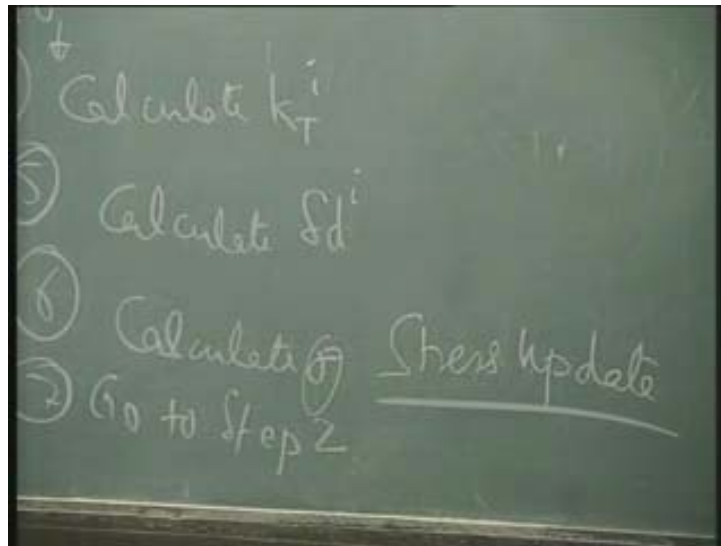 Calculate K_T^i
⑤ Calculate δd^i
⑥ Calculate σ Stress Update
⑦ Go to Step 2